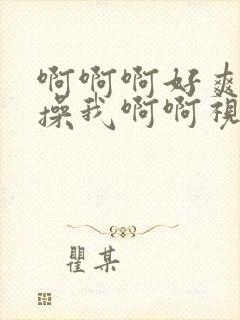 啊啊啊好爽
操我啊啊视
瞿某